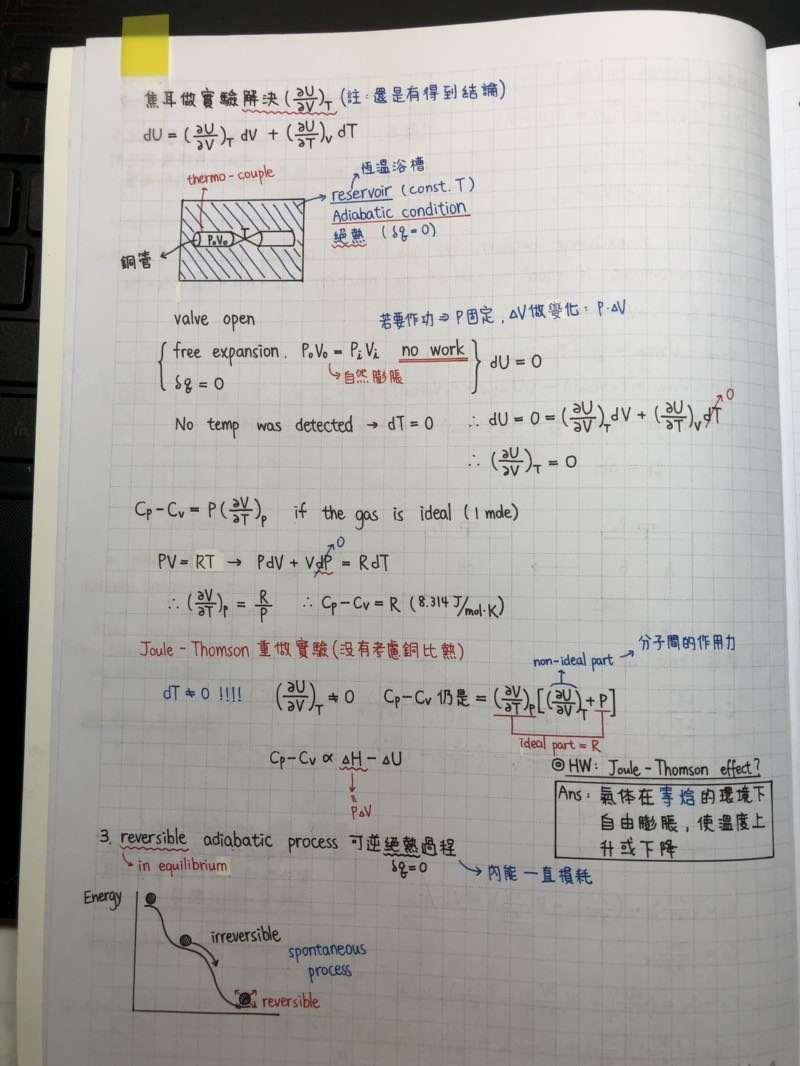 焦耳做實驗解決(∂U/∂V)_T (註:還是有得到結論)
dU = (∂U/∂V)_T dV + (∂U/∂T)_V dT
thermo-couple
恆溫浴槽
reservoir (const. T)
Adiabatic condition
絕熱 (δq=0)
P₀V₀
銅管
valve open
若要作功 ⇒ P固定, ΔV做變化: P·ΔV
free expansion. P₀V₀ = PᵢVᵢ no work
自然膨脹
δq = 0
dU = 0
No temp was detected → dT = 0 ∴ dU = 0 = (∂U/∂V)_T dV + (∂U/∂T)_V dT 0
∴ (∂U/∂V)_T = 0
Cp-Cv = P(∂V/∂T)_P if the gas is ideal (1 mole)
PV = RT → PdV + VdP 0 = RdT
∴ (∂V/∂T)_P = R/P ∴ Cp-Cv = R (8.314 J/mol·K)
Joule-Thomson 重做實驗(沒有考慮銅比熱)
non-ideal part → 分子間的作用力
dT ≠ 0 !!!! (∂U/∂V)_T ≠ 0 Cp-Cv 仍是 = (∂V/∂T)_P [(∂U/∂V)_T + P]
ideal part = R
Cp-Cv ∝ ΔH - ΔU
PΔV
◎ HW: Joule-Thomson effect?
Ans: 氣体在等焓的環境下
自由膨脹, 使溫度上
升或下降
3. reversible adiabatic process 可逆絕熱過程
in equilibrium
δq=0
內能一直損耗
Energy
irreversible
spontaneous
process
reversible